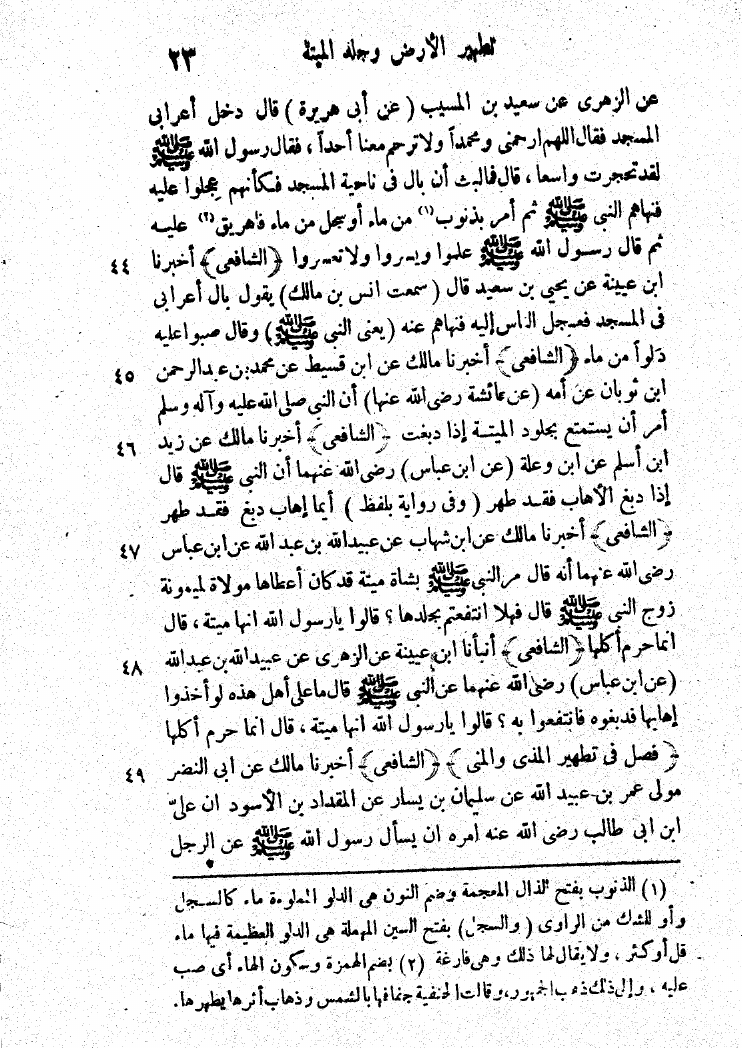 تطهير الأرض وجلد الميتة ٢٣
عن الزهرى عن سعيد بن المسيب ( عن أبى هريرة ) قال دخل أعرابى
المسجد فقال اللهم ارحمنى ومحمداً ولا ترحم معنا أحداً ، فقال رسول الله ﷺ
لقد تحجرت واسعا ، قال فما لبث أن بال فى ناحية المسجد فكأنهم عجلوا عليه
فنهاهم النبى ﷺ ثم أمر بذنوب (١) من ماء أو سجل من ماء فاهريق (٢) عليه
ثم قال رسول الله ﷺ علموا ويسروا ولا تعسروا ﴿ الشافعى ﴾ أخبرنا ٤٤
ابن عيينة عن يحيى بن سعيد قال ( سمعت انس بن مالك ) يقول بال أعرابى
فى المسجد فعجل الناس إليه فنهاهم عنه ( يعنى النبى ﷺ ) وقال صبوا عليه
دلواً من ماء ﴿ الشافعى ﴾ أخبرنا مالك عن ابن قسيط عن محمد بن عبد الرحمن ٤٥
ابن ثوبان عن أمه ( عن عائشة رضى الله عنها ) أن النبى صلى الله عليه وآله وسلم
أمر أن يستمتع بجلود الميتة إذا دبغت ﴿ الشافعى ﴾ أخبرنا مالك عن زيد ٤٦
ابن أسلم عن ابن وعلة ( عن ابن عباس ) رضى الله عنهما أن النبى ﷺ قال
إذا دبغ الأهاب فقد طهر ( وفى رواية بلفظ ) أيما إهاب دبغ فقد طهر
﴿ الشافعى ﴾ أخبرنا مالك عن ابن شهاب عن عبيد الله بن عبد الله عن ابن عباس ٤٧
رضى الله عنهما أنه قال مر النبى ﷺ بشاة ميتة قد كان أعطاها مولاة لميمونة
زوج النبى ﷺ قال فهلا انتفعتم بجلدها ؟ قالوا يارسول الله انها ميتة ، قال
انما حرم أكلها ﴿ الشافعى ﴾ أنبأنا ابن عيينة عن الزهرى عن عبيد الله بن عبد الله ٤٨
( عن ابن عباس ) رضى الله عنهما عن النبى ﷺ قال ما على أهل هذه لو أخذوا
إهابها فدبغوه فانتفعوا به ؟ قالوا يارسول الله انها ميتة ، قال انما حرم أكلها
﴿ فصل فى تطهير المذى والمنى ﴾ ﴿ الشافعى ﴾ أخبرنا مالك عن ابى النضر ٤٩
مولى عمر بن عبيد الله عن سليمان بن يسار عن المقداد بن الأسود ان علىّ
ابن ابى طالب رضى الله عنه أمره ان يسأل رسول الله ﷺ عن الرجل
(١) الذنوب بفتح الذال المعجمة وضم النون هى الدلو المملوءة ماء كالسجل
وأو للشك من الراوى ( والسجل ) بفتح السين المهملة هى الدلو العظيمة فيها ماء
قل أو كثر ، ولا يقال لها ذلك وهى فارغة (٢) بضم الهمزة وسكون الهاء أى صب
عليه ، وإلى ذلك ذهب الجمهور، وقالت الحنفية جفافها بالشمس وذهاب أثرها يطهرها.